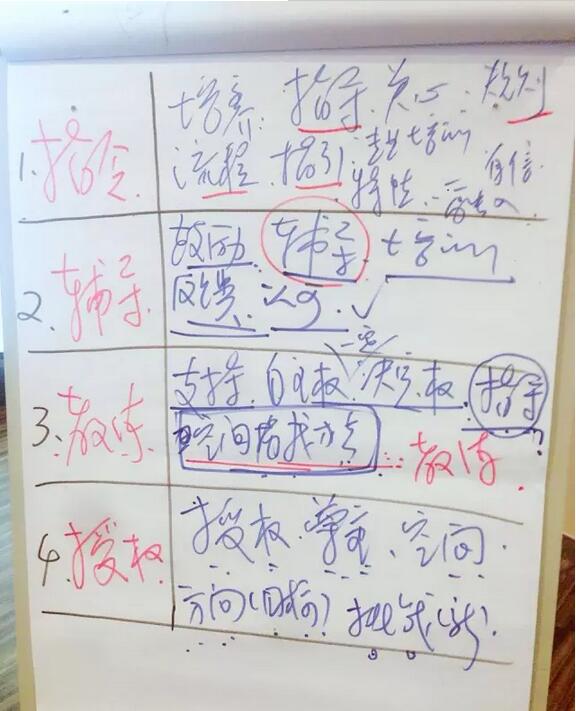 1. 指令
培养. 指导. 关心. 规则
流程. 指引. 培训 自信
2. 辅导
鼓励. 辅导 培训
反馈. 认可. ✓
一定
3. 教练
支持. 自主权. 决定权. 指导?
空间 教练.
4. 授权
授权. 尊重. 空间.
方向(目标) 挑战(新)